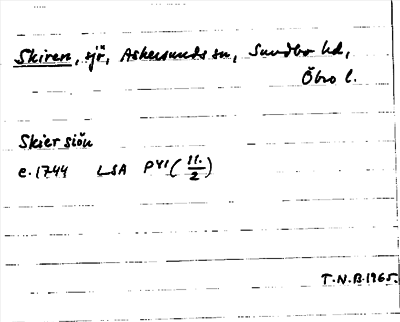 Skiren, sjö, Askersunds sn, Sundbo hd,
Öbro l.
Skier siön
c. 1744 LSA PYI (11./2)
T.N.B. 1965.